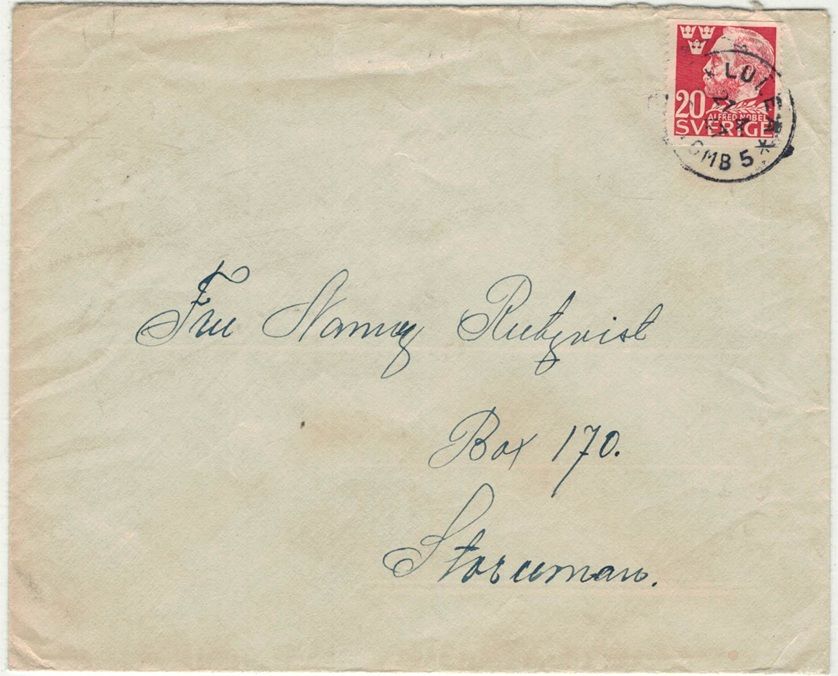 20
ALFRED NOBEL
SVERIGE
LULEÅ
OMB 5
Fru Nanny Rutqvist
Box 170.
Storuman.